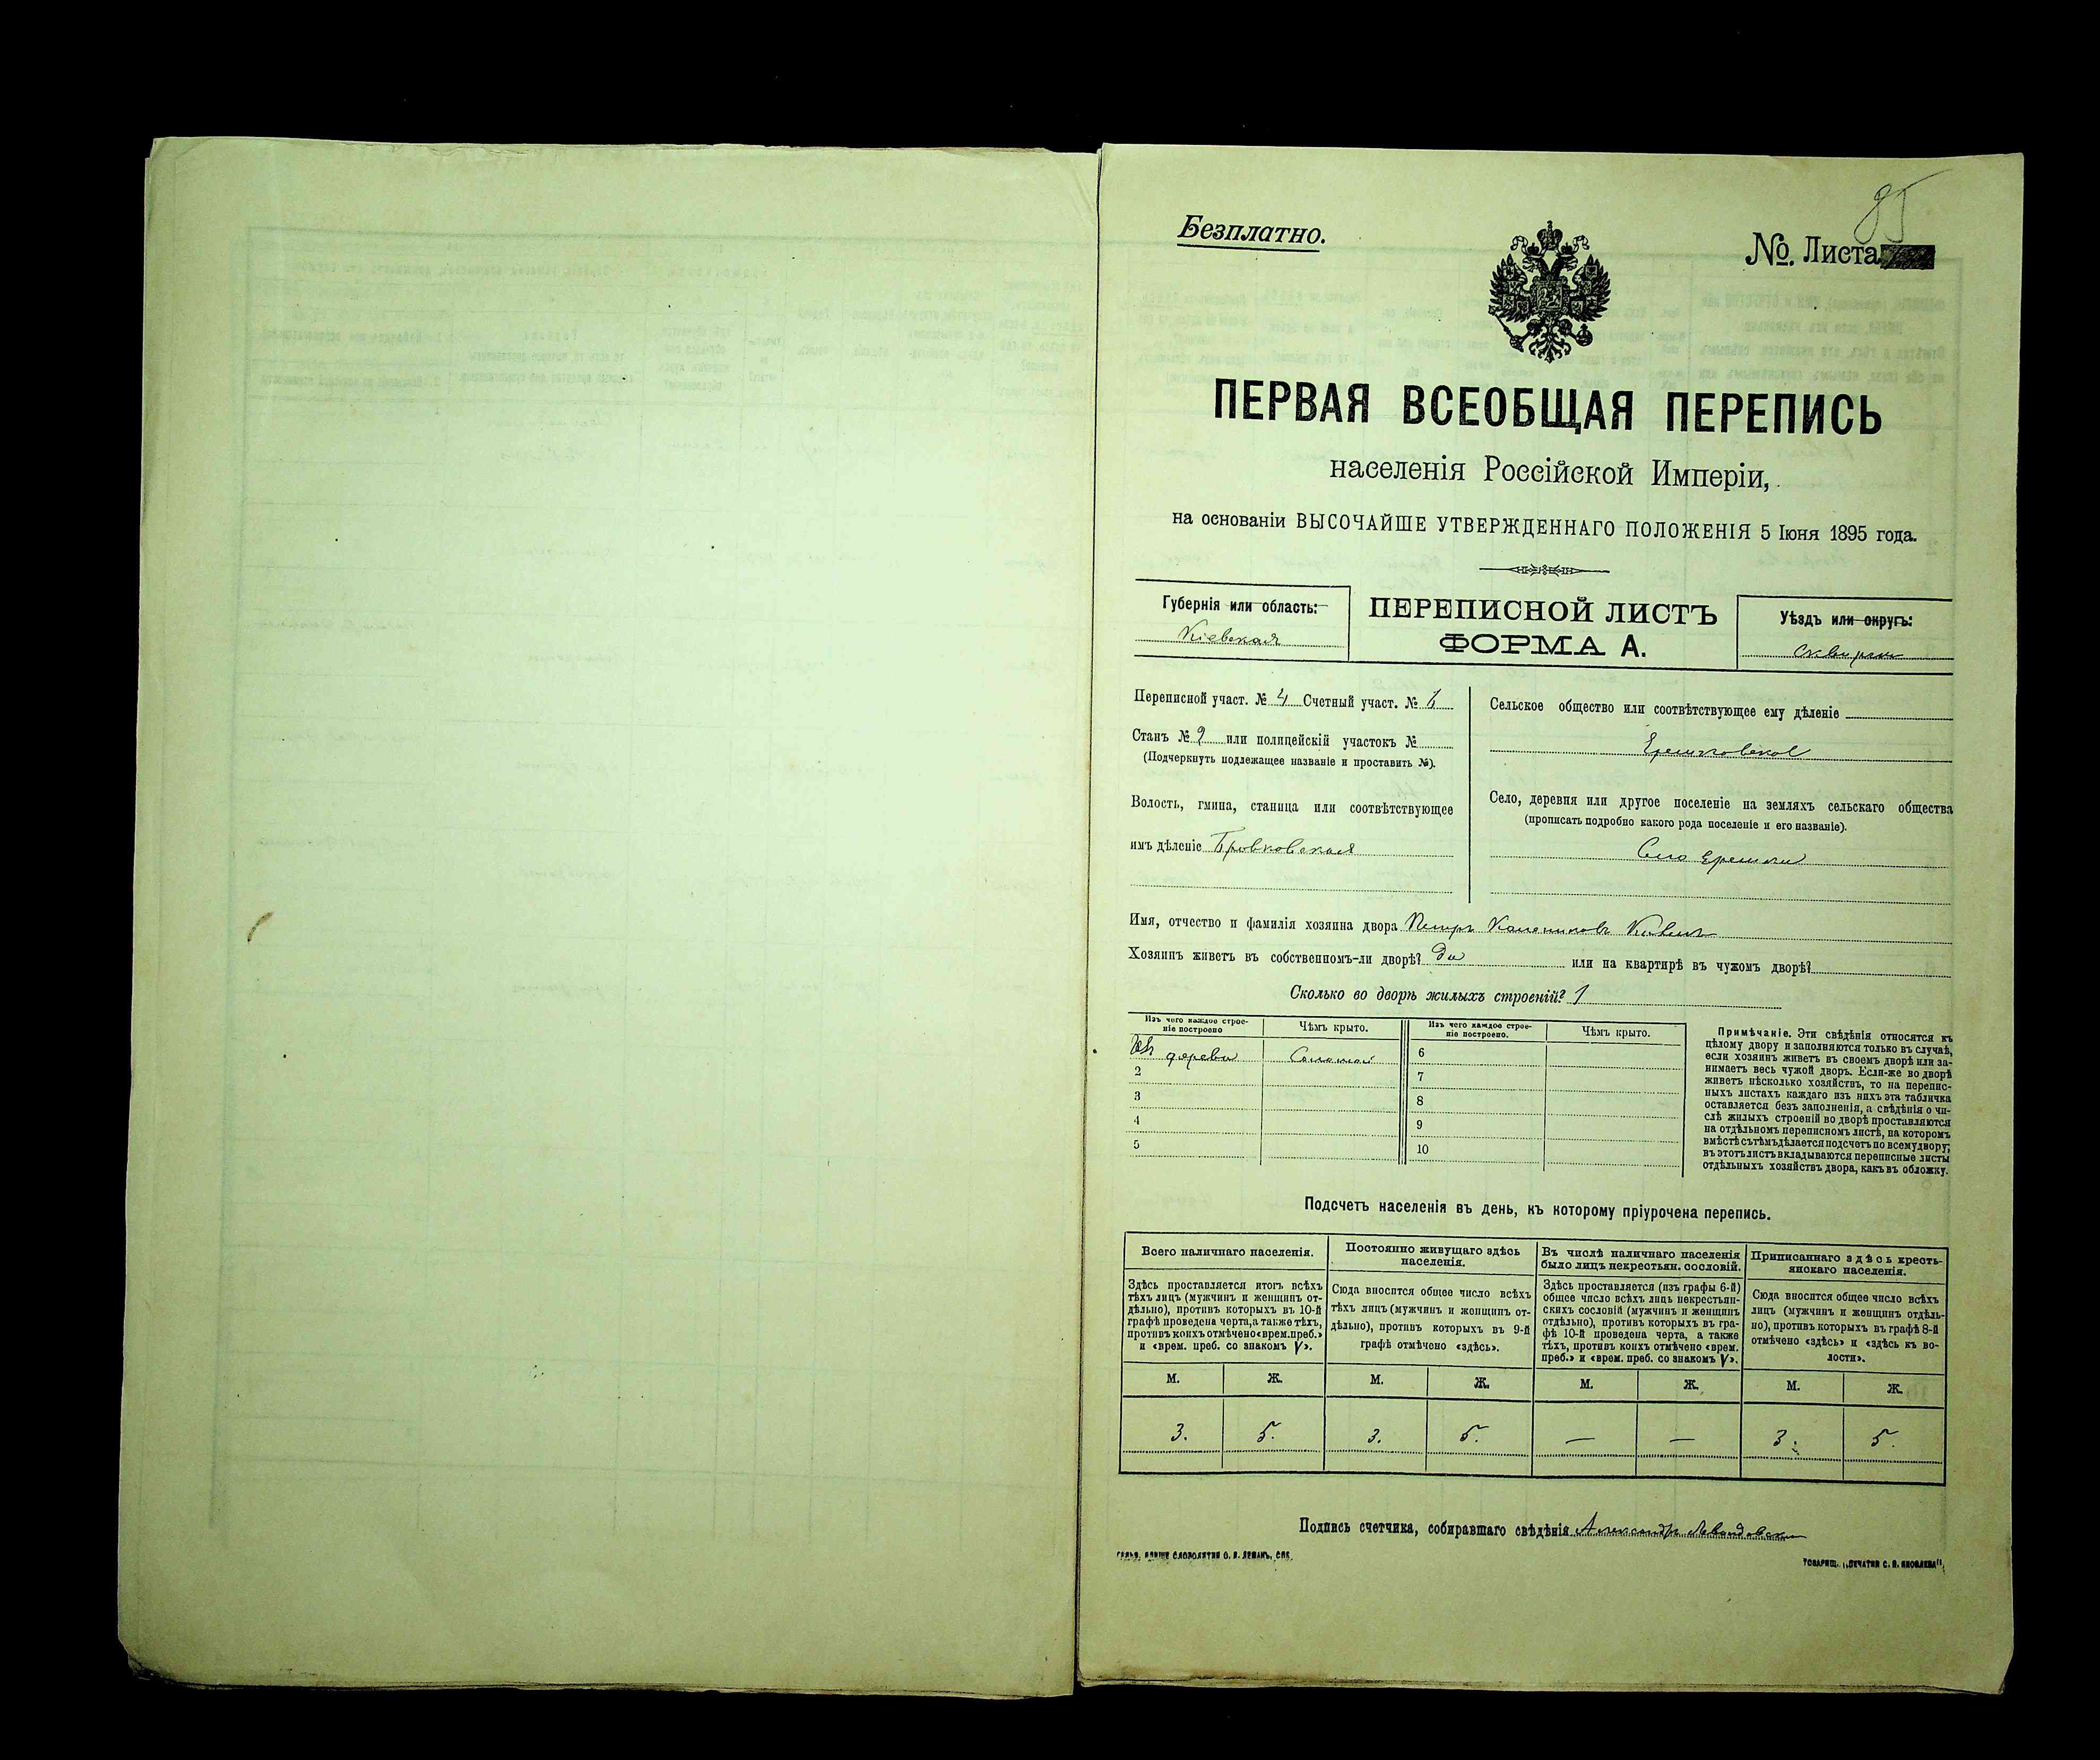 85
Безплатно.
№. Листа
ПЕРВАЯ ВСЕОБЩАЯ ПЕРЕПИСЬ
населенія Россійской Имперіи,
на основаніи ВЫСОЧАЙШЕ УТВЕРЖДЕННАГО ПОЛОЖЕНІЯ 5 Іюня 1895 года.
Губернія или область:
Кіевская
ПЕРЕПИСНОЙ ЛИСТЪ
ФОРМА А.
Уѣздъ или округъ:
Переписной участ. № 4 Счетный участ. №
Станъ № 2 или полицейскій участокъ №
(Подчеркнуть подлежащее названіе и проставить №).
Волость, гмина, станица или соотвѣтствующее
имъ дѣленіе Бровковская
Сельское общество или соотвѣтствующее ему дѣленіе
Ерешковское
Село, деревня или другое поселеніе на земляхъ сельскаго общества
(прописать подробно какого рода поселеніе и его названіе).
Село Ерешки
Имя, отчество и фамилія хозяина двора Петръ
Хозяинъ живетъ въ собственномъ-ли дворѣ? Да или на квартирѣ въ чужомъ дворѣ?
Сколько во дворѣ жилыхъ строеній? 1
Изъ чего каждое строе-
ніе построено
Чѣмъ крыто.
Изъ чего каждое строе-
ніе построено.
Чѣмъ крыто.
Изъ дерева Соломой 6
2 7
3 8
4 9
5 10
Примѣчаніе. Эти свѣдѣнія относятся къ
цѣлому двору и заполняются только въ случаѣ,
если хозяинъ живетъ въ своемъ дворѣ или за-
нимаетъ весь чужой дворъ. Если-же во дворѣ
живетъ нѣсколько хозяйствъ, то на перепис-
ныхъ листахъ каждаго изъ нихъ эта табличка
оставляется безъ заполненія, а свѣдѣнія о чи-
слѣ жилыхъ строеній во дворѣ проставляются
на отдѣльномъ переписномъ листѣ, на которомъ
вмѣстѣ съ тѣмъ дѣлается подсчетъ по всему двору;
въ этотъ листъ вкладываются переписные листы
отдѣльныхъ хозяйствъ двора, какъ въ обложку.
Подсчетъ населенія въ день, къ которому пріурочена перепись.
Всего наличнаго населенія.
Здѣсь проставляется итогъ всѣхъ
тѣхъ лицъ (мужчинъ и женщинъ от-
дѣльно), противъ которыхъ въ 10-й
графѣ проведена черта, а также тѣхъ,
противъ коихъ отмѣчено «врем. преб.»
и «врем. преб. со знакомъ V».
Постоянно живущаго здѣсь
населенія.
Сюда вносится общее число всѣхъ
тѣхъ лицъ (мужчинъ и женщинъ от-
дѣльно), противъ которыхъ въ 9-й
графѣ отмѣчено «здѣсь».
Въ числѣ наличнаго населенія
было лицъ некрестьян. сословій.
Здѣсь проставляется (изъ графы 6-й)
общее число всѣхъ лицъ некрестьян-
скихъ сословій (мужчинъ и женщинъ
отдѣльно), противъ которыхъ въ гра-
фѣ 10-й проведена черта, а также
тѣхъ, противъ коихъ отмѣчено «врем.
преб.» и «врем. преб. со знакомъ V».
Приписаннаго здѣсь кресть-
янскаго населенія.
Сюда вносится общее число всѣхъ
лицъ (мужчинъ и женщинъ отдѣль-
но), противъ которыхъ въ графѣ 8-й
отмѣчено «здѣсь» и «здѣсь къ во-
лости».
М. Ж. М. Ж. М. Ж. М. Ж.
3. 5. 3. 5. — — 3. 5.
Подпись счетчика, собиравшаго свѣдѣнія Александръ Левандовскій
ТОВАРИЩ. „ПЕЧАТНЯ С. П. ЯКОВЛЕВА"